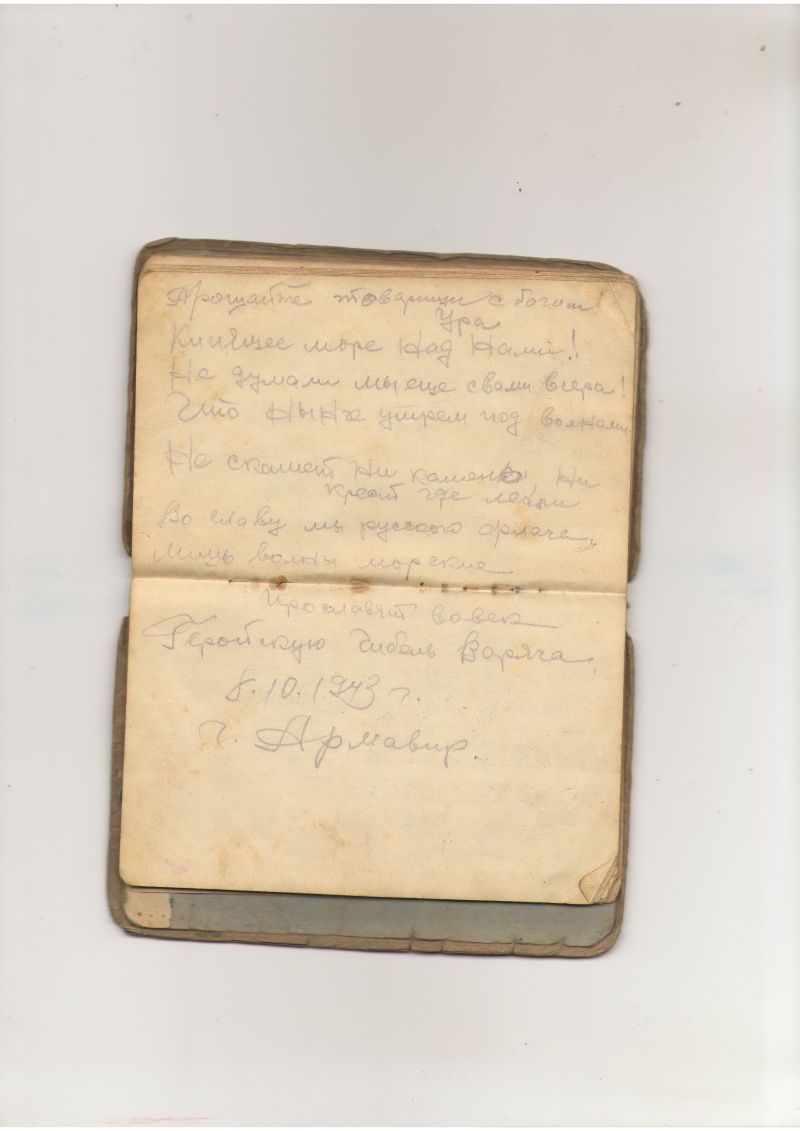 Прощайте товарищи с богом!
Ура
Кипящее море над Нами!
Не думали мы еще с вами вчера!
Что Нынче утрем под волнами.
Не скажет Ни камень, Ни
крест где легли
Во славу мы русского
Лишь волны морские
Прославят вовек
Геройскую Гибель Варяга.
8.10.1943 г.
г. Армавир.